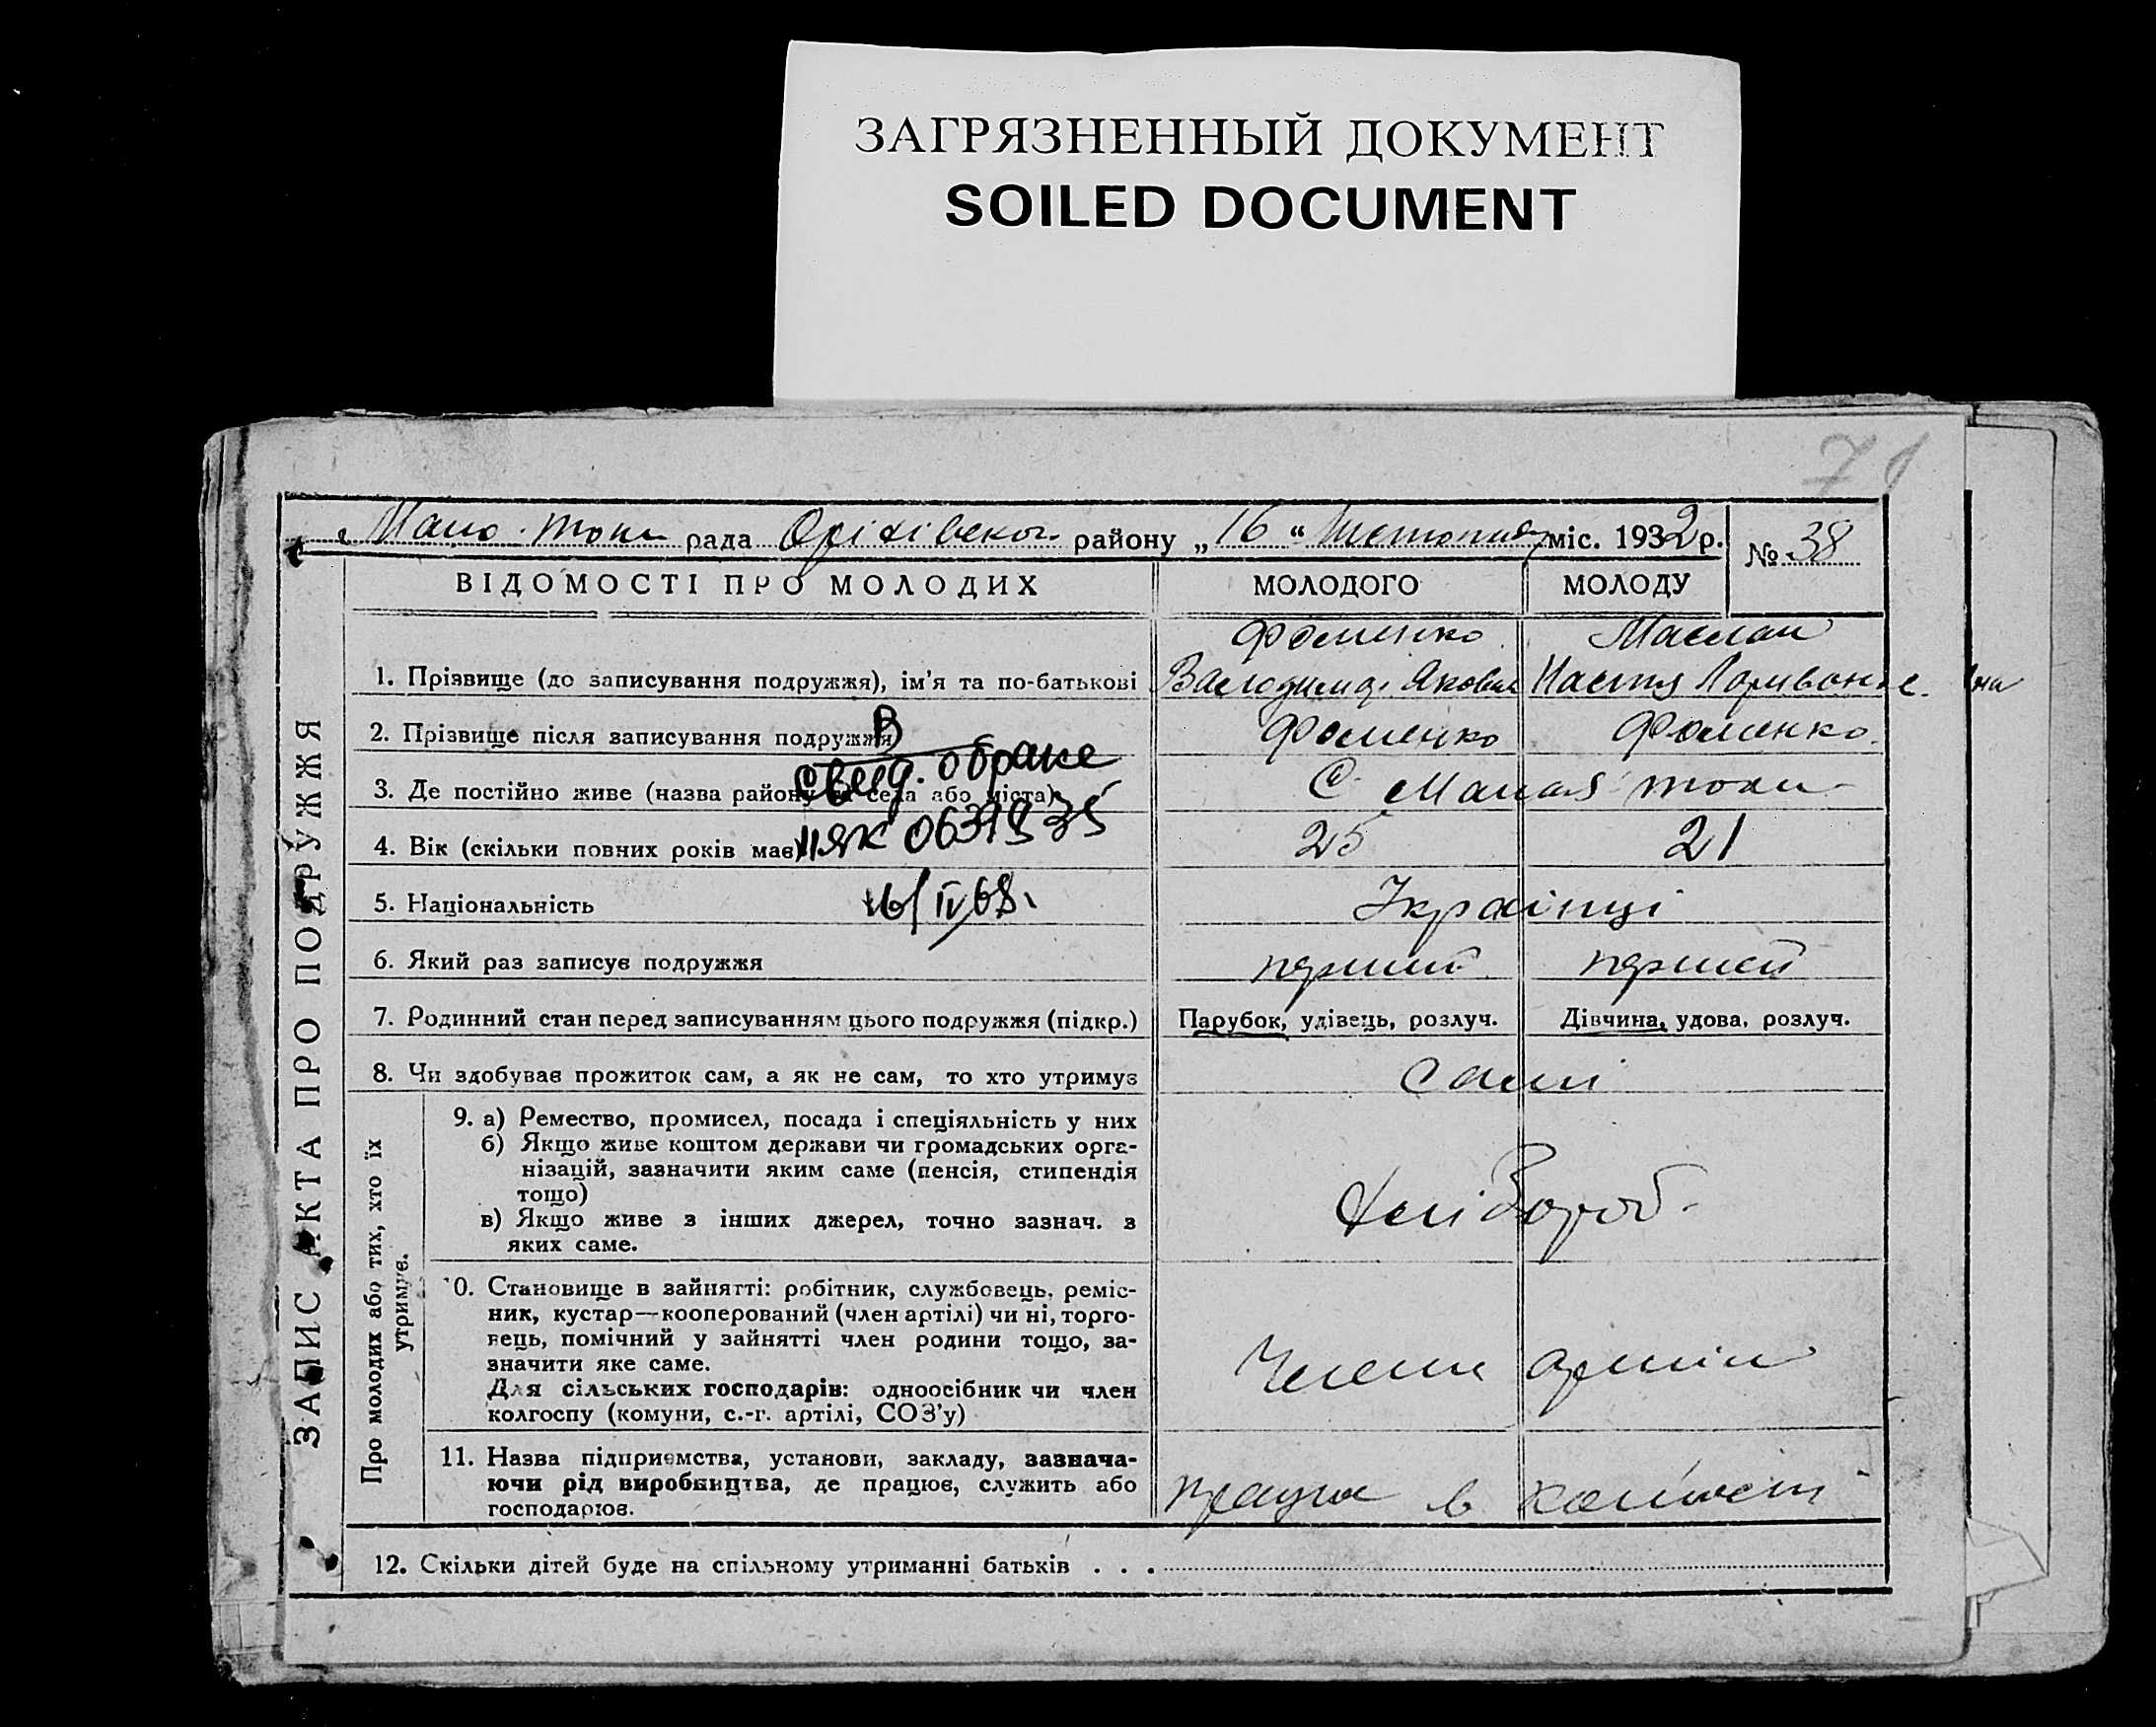 ЗАГРЯЗНЕННЫЙ ДОКУМЕНТ
SOILED DOCUMENT
71
Мало-Ток рада Оріхівської району „16“ Листопада міс. 1932 р. № 38
ЗАПИС АКТА ПРО ПОДРУЖЖЯ
ВІДОМОСТІ ПРО МОЛОДИХ МОЛОДОГО МОЛОДУ
Фоменко
1. Прізвище (до записування подружжя), ім'я та по-батькові Володимир Яков Настя
2. Прізвище після записування подружжя Фоменко Фоменко
3. Де постійно живе (назва району та села або міста) С. Малая
4. Вік (скільки повних років має) 25 21
5. Національність Українці
16/IV 68.
6. Який раз записує подружжя перший перший
7. Родинний стан перед записуванням цього подружжя (підкр.) Парубок, удівець, розлуч. Дівчина, удова, розлуч.
8. Чи здобуває прожиток сам, а як не сам, то хто утримує самі
Про молодих або тих, хто їх утримує.
9. а) Ремество, промисел, посада і спеціяльність у них
б) Якщо живе коштом держави чи громадських орга-
нізацій, зазначити яким саме (пенсія, стипендія
тощо)
в) Якщо живе з інших джерел, точно зазнач. з
яких саме.
Хлібороб.
10. Становище в зайнятті: робітник, службовець, реміс-
ник, кустар—кооперований (член артілі) чи ні, торго-
вець, помічний у зайнятті член родини тощо, за-
значити яке саме.
Для сільських господарів: одноосібник чи член
колгоспу (комуни, с.-г. артілі, СОЗ'у)
Члени
11. Назва підприємства, установи, закладу, зазнача-
ючи рід виробництва, де працює, служить або
господарює.
в
12. Скільки дітей буде на спільному утриманні батьків . . .